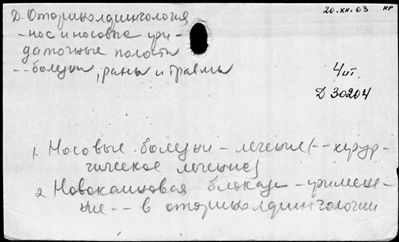 20.XII.63 НР
Д. Оториноларингология
- нос и носовые при-
даточные полости
-- болезни, раны и травмы
4 шт.
Д 30204
1. Носовые болезни - лечение (-- хирур-
гическое лечение)
2. Новокаиновая блокада - примене-
ние -- в оториноларингологии